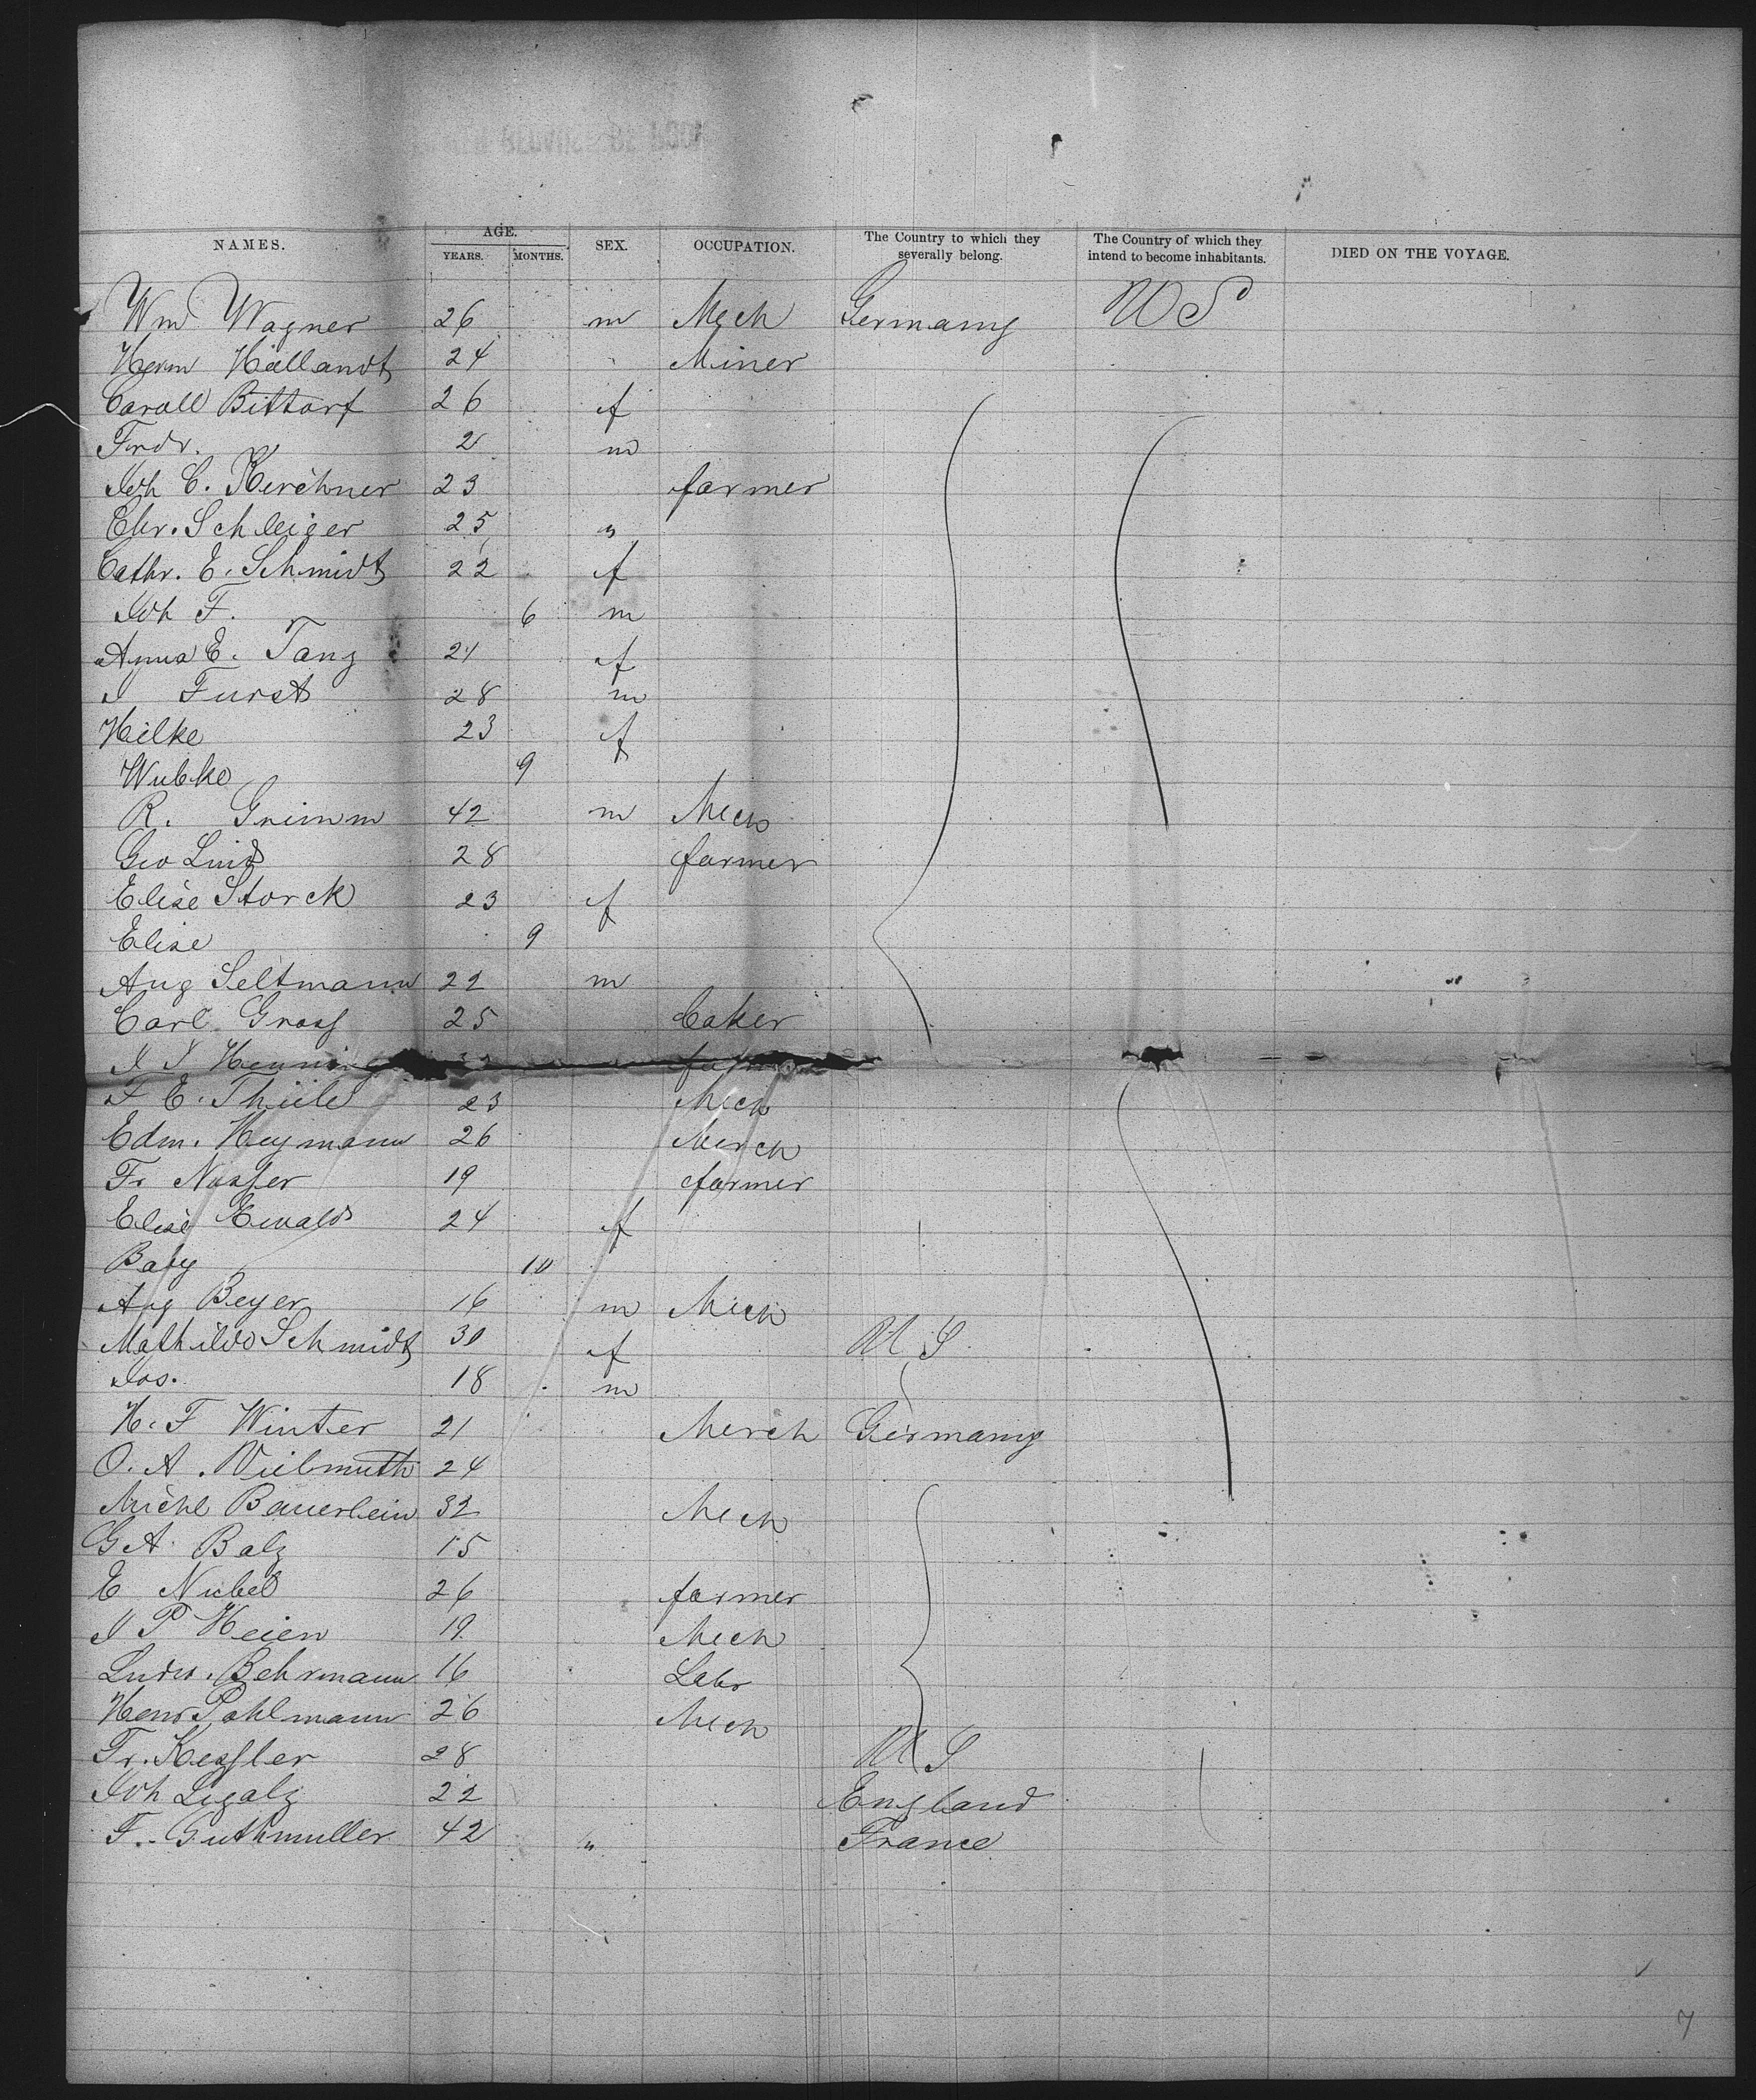 NAMES. AGE. YEARS. MONTHS. SEX. OCCUPATION. The Country to which they severally belong. The Country of which they intend to become inhabitants. DIED ON THE VOYAGE.
Wm Wagner 26 m Mech Germany U S
Herm Hillandt 24 Miner
Caroll Bittorf 26 f
Frdr. 2 m
Joh C. Kirchner 23 farmer
Chr. Schleiger 25 "
Cathr. E. Schmidt 22 f
Joh F. 6 m
Anna E. Tang 21 f
J Furst 28 m
Hilke 23 f
Wubke 9
R. Grimm 42 m Mech
Geo Lind 28 farmer
Elise Storck 23 f
Elise 9
Aug Seltmann 22 m
Carl Gross 25 baker
J J Henning
F E. Thiele 23 Mech
Edm. Heymann 26 Merch
Fr Nasser 19 farmer
Elise Ewald 24 f
Baby 10
Aug Beyer 16 m Mech
Mathilde Schmidt 30 f U S
Jos. 18 m
H. F Winter 21 Merch Germany
O. A. Vielmuth 24
Michl Bauerlein 32 Mech
G A. Balz 15
E Nickel 26 farmer
J P Heien 19 Mech
Ludw. Behrmann 16 Labr
Henr Pohlmann 26 Mech
Fr. Kessler 28 U S
Joh Ligalz 22 England
F. Guthmuller 42 " France
7